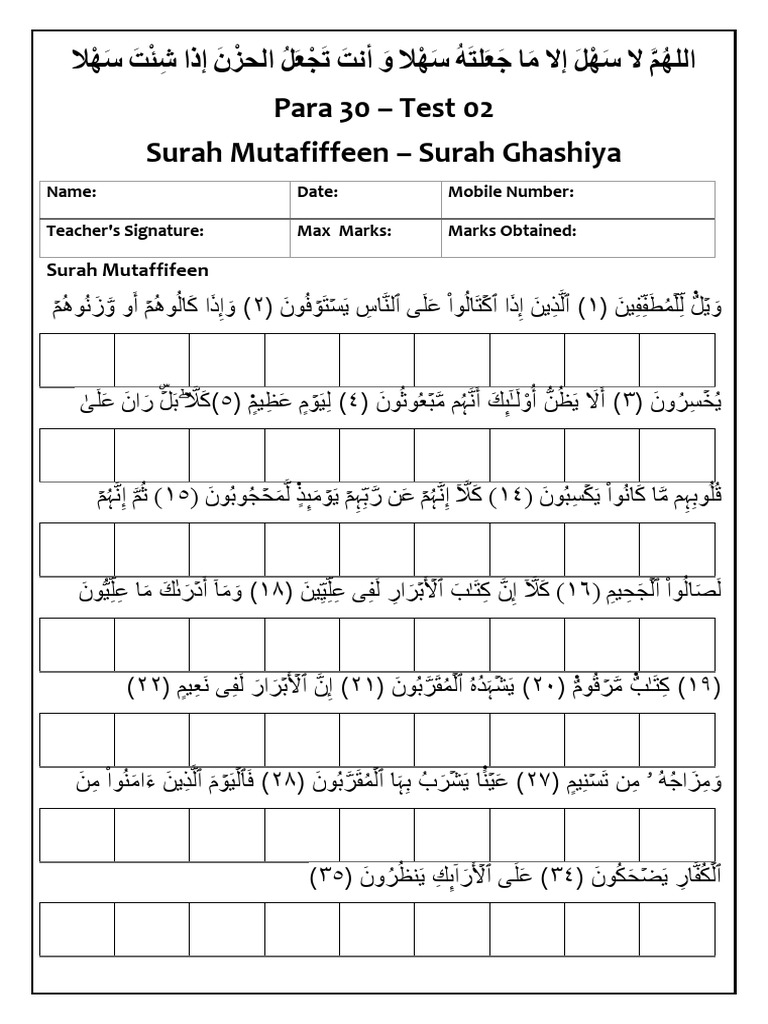 اللهُمَّ لا سَهْلَ إلا مَا جَعَلتَهُ سَهْلا وَ أنتَ تَجْعَلُ الحزْنَ إذا شِئْتَ سَهْلا
Para 30 – Test 02
Surah Mutafiffeen – Surah Ghashiya
Name: Date: Mobile Number:
Teacher's Signature: Max Marks: Marks Obtained:
Surah Mutaffifeen
وَيۡلٌ۬ لِّلۡمُطَفِّفِينَ (١) ٱلَّذِينَ إِذَا ٱكۡتَالُواْ عَلَى ٱلنَّاسِ يَسۡتَوۡفُونَ (٢) وَإِذَا كَالُوهُمۡ أَو وَّزَنُوهُمۡ
يُخۡسِرُونَ (٣) أَلَا يَظُنُّ أُوْلَـٰٓٮِٕكَ أَنَّہُم مَّبۡعُوثُونَ (٤) لِيَوۡمٍ عَظِيمٍ۬ (٥)كَلَّا‌ۖ بَلۡۜ رَانَ عَلَىٰ
قُلُوبِہِم مَّا كَانُواْ يَكۡسِبُونَ (١٤) كَلَّآ إِنَّہُمۡ عَن رَّبِّہِمۡ يَوۡمَٮِٕذٍ۬ لَّمَحۡجُوبُونَ (١٥) ثُمَّ إِنَّہُمۡ
لَصَالُواْ ٱلۡجَحِيمِ (١٦) كَلَّآ إِنَّ كِتَـٰبَ ٱلۡأَبۡرَارِ لَفِى عِلِّيِّينَ (١٨) وَمَآ أَدۡرَٮٰكَ مَا عِلِّيُّونَ
(١٩) كِتَـٰبٌ۬ مَّرۡقُومٌ۬ (٢٠) يَشۡہَدُهُ ٱلۡمُقَرَّبُونَ (٢١) إِنَّ ٱلۡأَبۡرَارَ لَفِى نَعِيمٍ (٢٢)
وَمِزَاجُهُ ۥ مِن تَسۡنِيمٍ (٢٧) عَيۡنً۬ا يَشۡرَبُ بِہَا ٱلۡمُقَرَّبُونَ (٢٨) فَٱلۡيَوۡمَ ٱلَّذِينَ ءَامَنُواْ مِنَ
ٱلۡكُفَّارِ يَضۡحَكُونَ (٣٤) عَلَى ٱلۡأَرَآٮِٕكِ يَنظُرُونَ (٣٥)